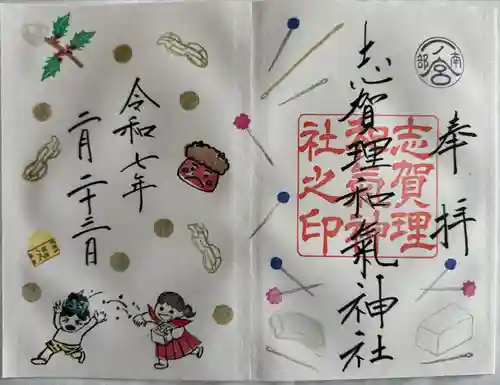 奉拝
南部
一ノ宮
志賀理和氣神社
志賀理
和氣神
社之印
令和七年
二月二十三日